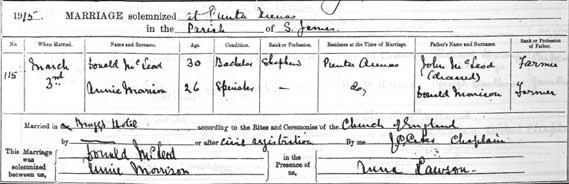 1915. MARRIAGE solemnized at Punta Arenas
in the Parish of S. James.
No. When Married. Name and Surname. Age. Condition. Rank or Profession. Residence at the Time of Marriage. Father's Name and Surname. Rank or Profession of Father.
115 March 3rd Donald McLeod 30 Bachelor Shepherd Punta Arenas John McLeod (deceased) Farmer
Annie Morrison 26 Spinster — Do, Donald Morrison Farmer
Married in Braggs Hotel according to the Rites and Ceremonies of the Church of England
by — or after Civil registration By me Chaplain
This Marriage was solemnized between us, Donald McLeod Annie Morrison in the Presence of us, Anna Lawson.